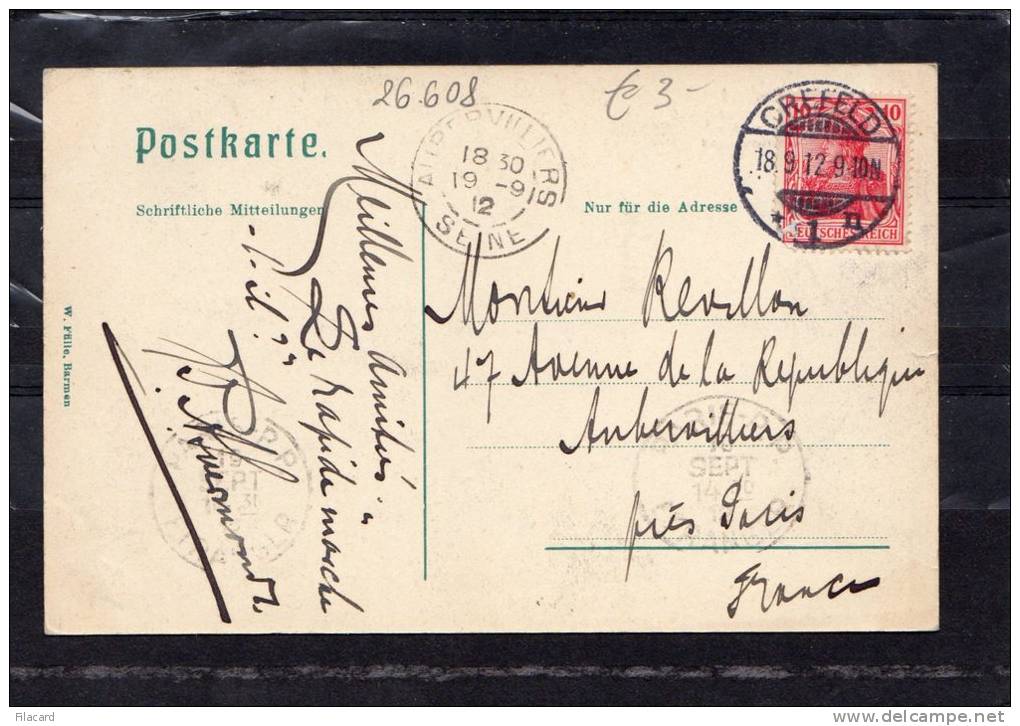 26.608
€ 3-
Postkarte.
Schriftliche Mitteilungen
Nur für die Adresse
AUBERVILLIERS
18 30
19 -9
12
SEINE
CREFELD
18.9.12.9-10N.
* 1 n
10
DEUTSCHES REICH
Meilleures Amitiés.
Le rapide marche
-t-il ??
Monsieur Revillon
47 Avenue de la Republique
Aubervilliers
près Paris
France
SEPT
W. Fülle, Barmen
Filacard
www.delcampe.net